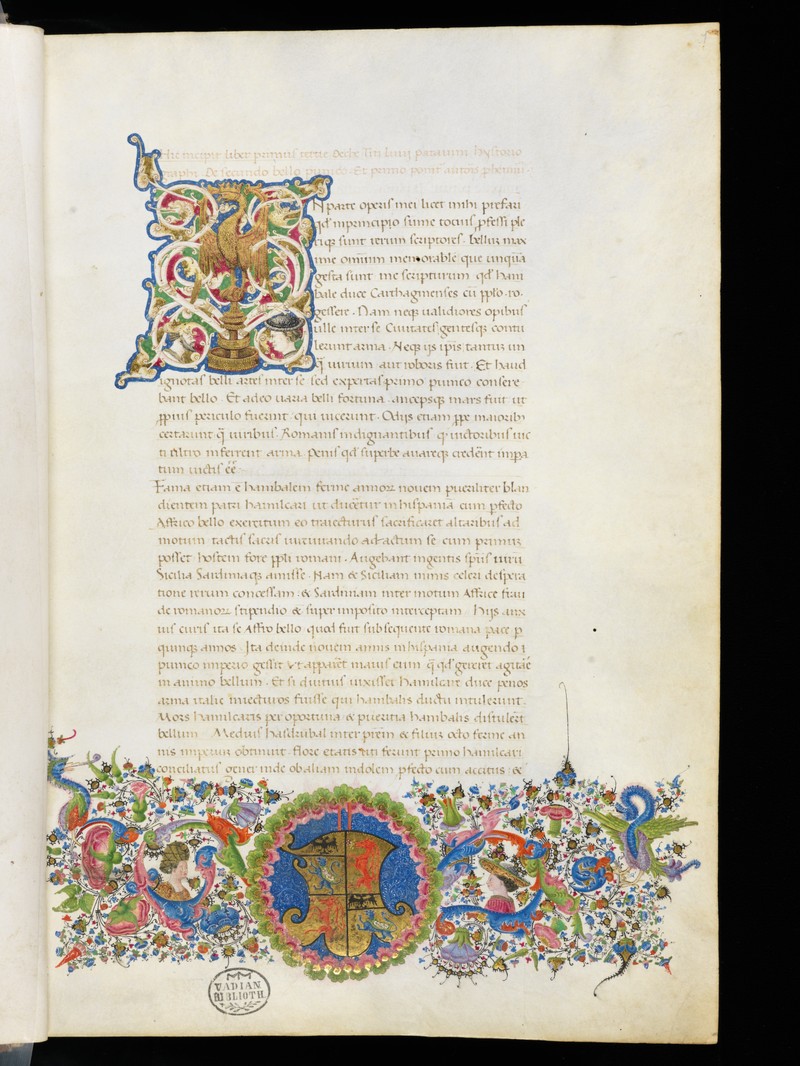 Hic incipit liber primus tertie Deche Titi livij patavini hystorio
graphi. De secundo bello punico. Et primo ponit
N parte operis mei licet mihi prefari
qd' inprincipio sume tocius pfessi ple
riq3 sunt rerum scriptores. bellū max
ime omīum memorabile que unquā
gesta sunt me scripturum qd' hani
bale duce Carthaginenses cū pplo ro.
gessere. Nam neq3 ualidiores opibus
ulle inter se Ciuitates gentesq3 contu
lerunt arma. Neq3 ijs ipis tantum un
q̄ uirium aut roboris fuit. Et haud
ignotas belli artes inter se sed expertas primo punico consere
bant bello. Et adeo uaria belli fortuna. ancepsq3 mars fuit ut
ppius periculo fuerint qui uicerunt. Odijs etiam ppe maioribȝ
certarunt q̄ uiribus. Romanis indignantibus q' uictoribus uic
ti ultro inferrent arma. Penis qd' superbe auareq3 crederēt impa
tum uictis eē.
Fama etiam ē hanibalem ferme annoꝝ nouem pueriliter blan
dientem patri hamilcari ut duceretur in hispaniā cum pfecto
Affrico bello exercitum eo traiecturus sacrificaret altaribus ad
motum tactis sacris iureiurando adactum se cum primum
posset hostem fore ppli romani. Augebant ingentis spūs uirū
Sicilia Sardiniaq3 amisse. Nam & Siciliam nimis celeri despera
tione rerum concessam. & Sardiniam inter motum Affrice frau
de romanoꝝ stipendio & super imposito interceptam. Hijs anx
ius curis ita se Affro bello. quod fuit sub sequente romana pace p
quinq3 annos. Ita deinde nouem annis in hispania augendo
punico imperio gessit. Ut appareret maius eum q̄ qd' gereret agitare
in animo bellum. Et si diutius uixisset hamilcare duce penos
arma italie inuecturos fuisse qui hanibalis ductu intulerunt.
Mors hamilcaris per oportuna & pueritia hanibalis distulerūt
bellum. Medius hasdrubal inter prēm & filium octo ferme an
nis imperium obtinuit. flore etatis uti ferunt primo hamilcari
conciliatus gener inde ob aliam indolem pfecto cum accitus. &
VADIAN.
BIBLIOTH.